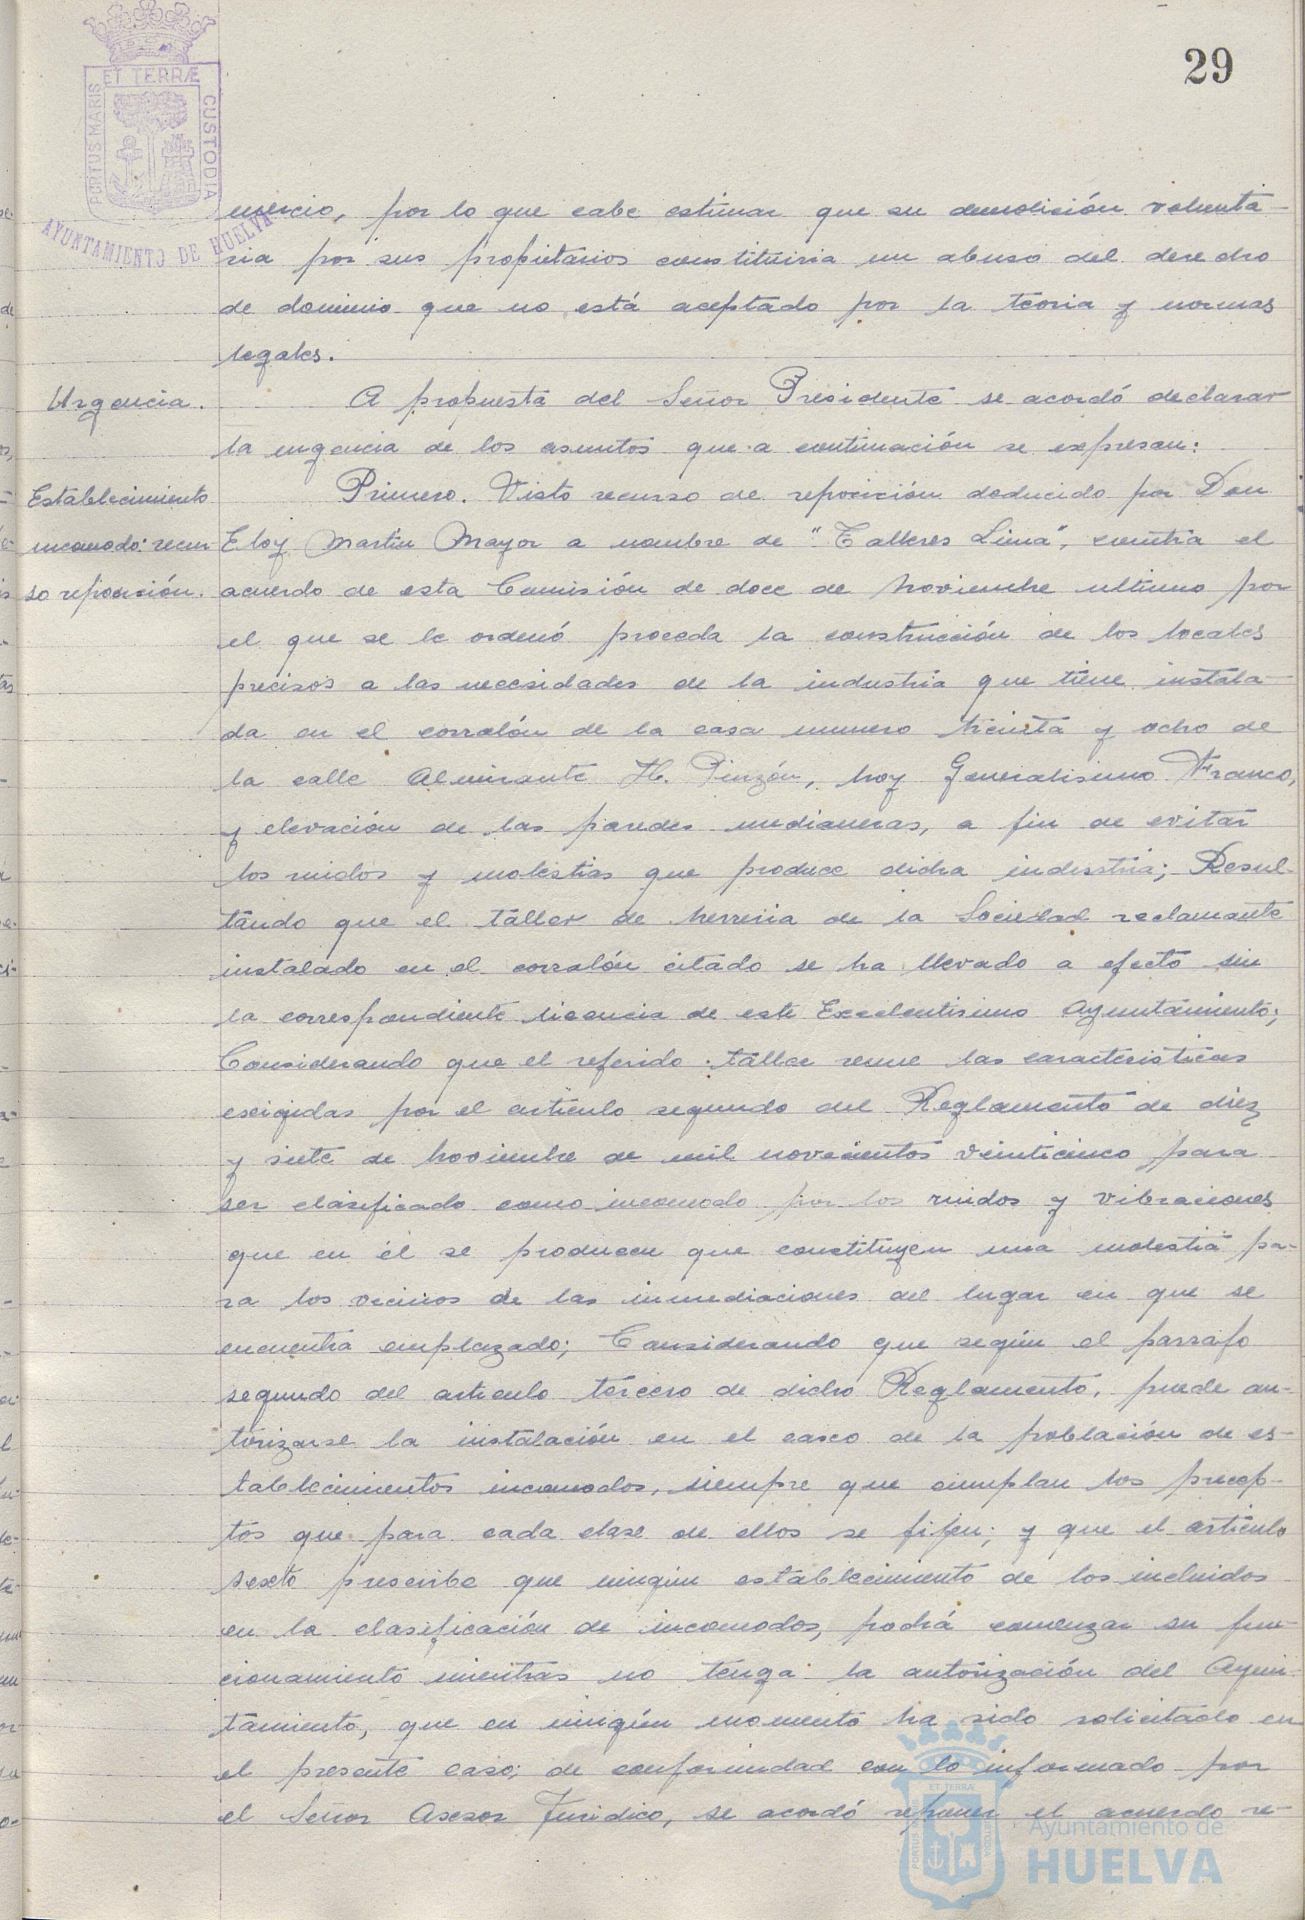 29
PORTUS MARIS ET TERRÆ CUSTODIA
AYUNTAMIENTO DE HUELVA
mercio, por lo que cabe estimar que su demolición volunta-
ria por sus propietarios constituiria un abuso del derecho
de dominio que no está aceptado por la teoria y normas
legales.
Urgencia.
A propuesta del Señor Presidente se acordó declarar
la urgencia de los asuntos que a continuación se expresan:
Establecimiento
incomodo: recur
so reposición.
Primero. Visto recurso de reposición deducido por Don
Eloy Martin Mayor a nombre de "Talleres Lima", contra el
acuerdo de esta Comisión de doce de Noviembre ultimo por
el que se le ordenó proceda la construcción de los locales
precisos a las necesidades de la industria que tiene instala-
da en el corralón de la casa numero treinta y ocho de
la calle Almirante H. Pinzón, hoy Generalisimo Franco,
y elevación de las paredes medianeras, a fin de evitar
los ruidos y molestias que produce dicha industria; Resul-
tando que el taller de herreria de la Sociedad reclamante
instalado en el corralón citado se ha llevado a efecto sin
la correspondiente licencia de este Excelentisimo Ayuntamiento;
Considerando que el referido taller reune las caracteristicas
exigidas por el articulo segundo del Reglamento de diez
y siete de Noviembre de mil novecientos veinticinco para
ser clasificado como incomodo por los ruidos y vibraciones
que en él se producen que constituyen una molestia pa-
ra los vecinos de las inmediaciones del lugar en que se
encuentra emplazado; Considerando que según el parrafo
segundo del articulo tercero de dicho Reglamento, puede au-
torizarse la instalación en el casco de la población de es-
tablecimientos incomodos, siempre que cumplan los precep-
tos que para cada clase de ellos se fijen; y que el articulo
sexto prescribe que ningún establecimiento de los incluidos
en la clasificación de incomodos, podrá comenzar su fun-
cionamiento mientras no tenga la autorización del Ayun-
tamiento, que en ningún momento ha sido solicitado en
el presente caso; de conformidad con lo informado por
el Señor Asesor Juridico, se acordó reponer el acuerdo re-
Ayuntamiento de
HUELVA